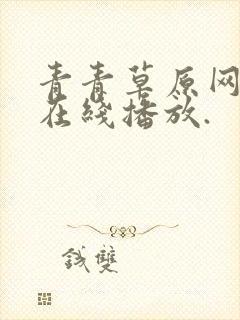 青青草原网
在线播放.
钱双